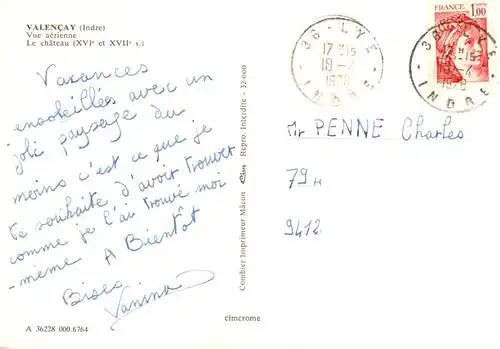 VALENÇAY (Indre)
Vue aérienne
Le château (XVIe et XVIIe s.)
Vacances
ensoleillées avec un
joli paysage du
moins c'est ce que je
te souhaite d'avoir trouver
comme je l'ai trouvé moi
-même A Bientôt
Bises
Vanina
A 36228 000.6764
Combier Imprimeur Mâcon
Repro. Interdite - 32-000
cimcrome
36 - LYE
17 H 15
18 - 4
1978
INDRE
FRANCE 1,00
36 - LYE
18 - 4
1978
INDRE
Mr PENNE Charles
79
9412.